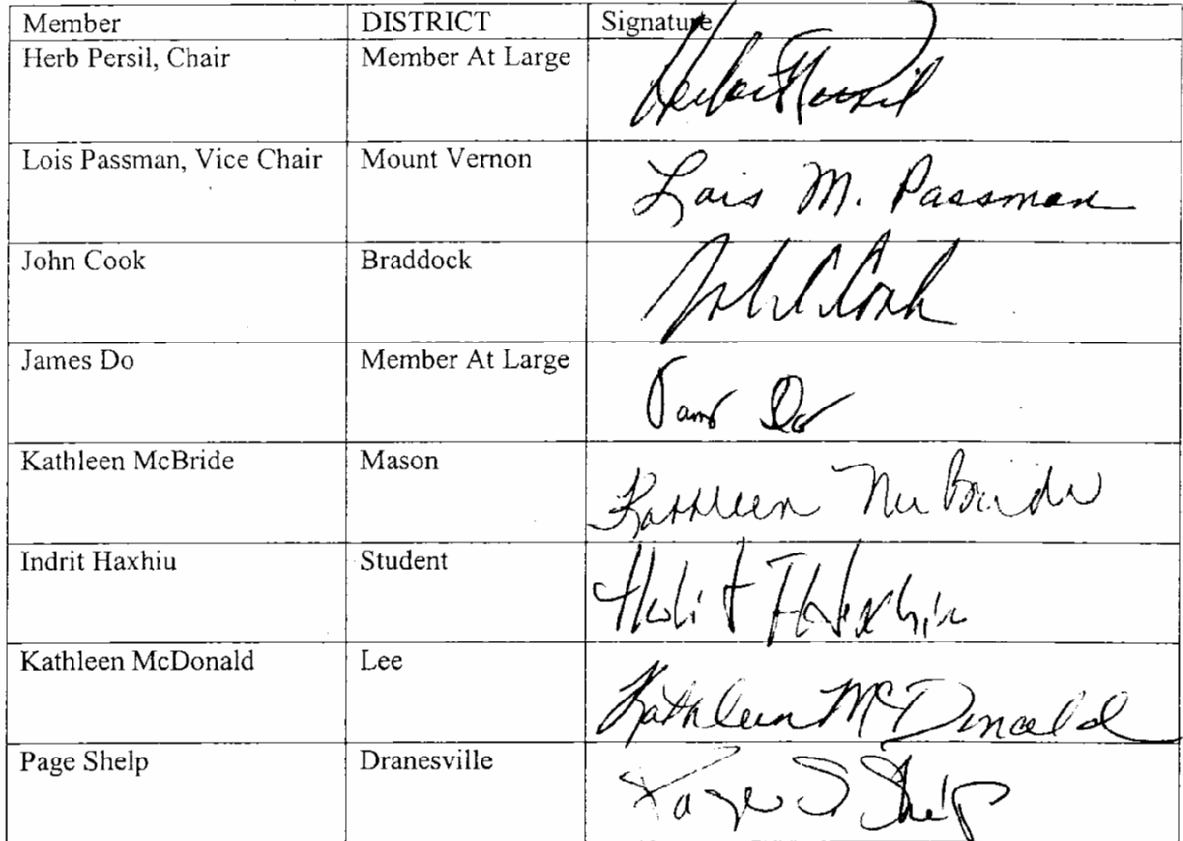 Member DISTRICT Signature
Herb Persil, Chair Member At Large
Lois Passman, Vice Chair Mount Vernon Lois M. Passman
John Cook Braddock John C Cook
James Do Member At Large James Do
Kathleen McBride Mason Kathleen McBride
Indrit Haxhiu Student Haxhiu
Kathleen McDonald Lee Kathleen McDonald
Page Shelp Dranesville Page S Shelp